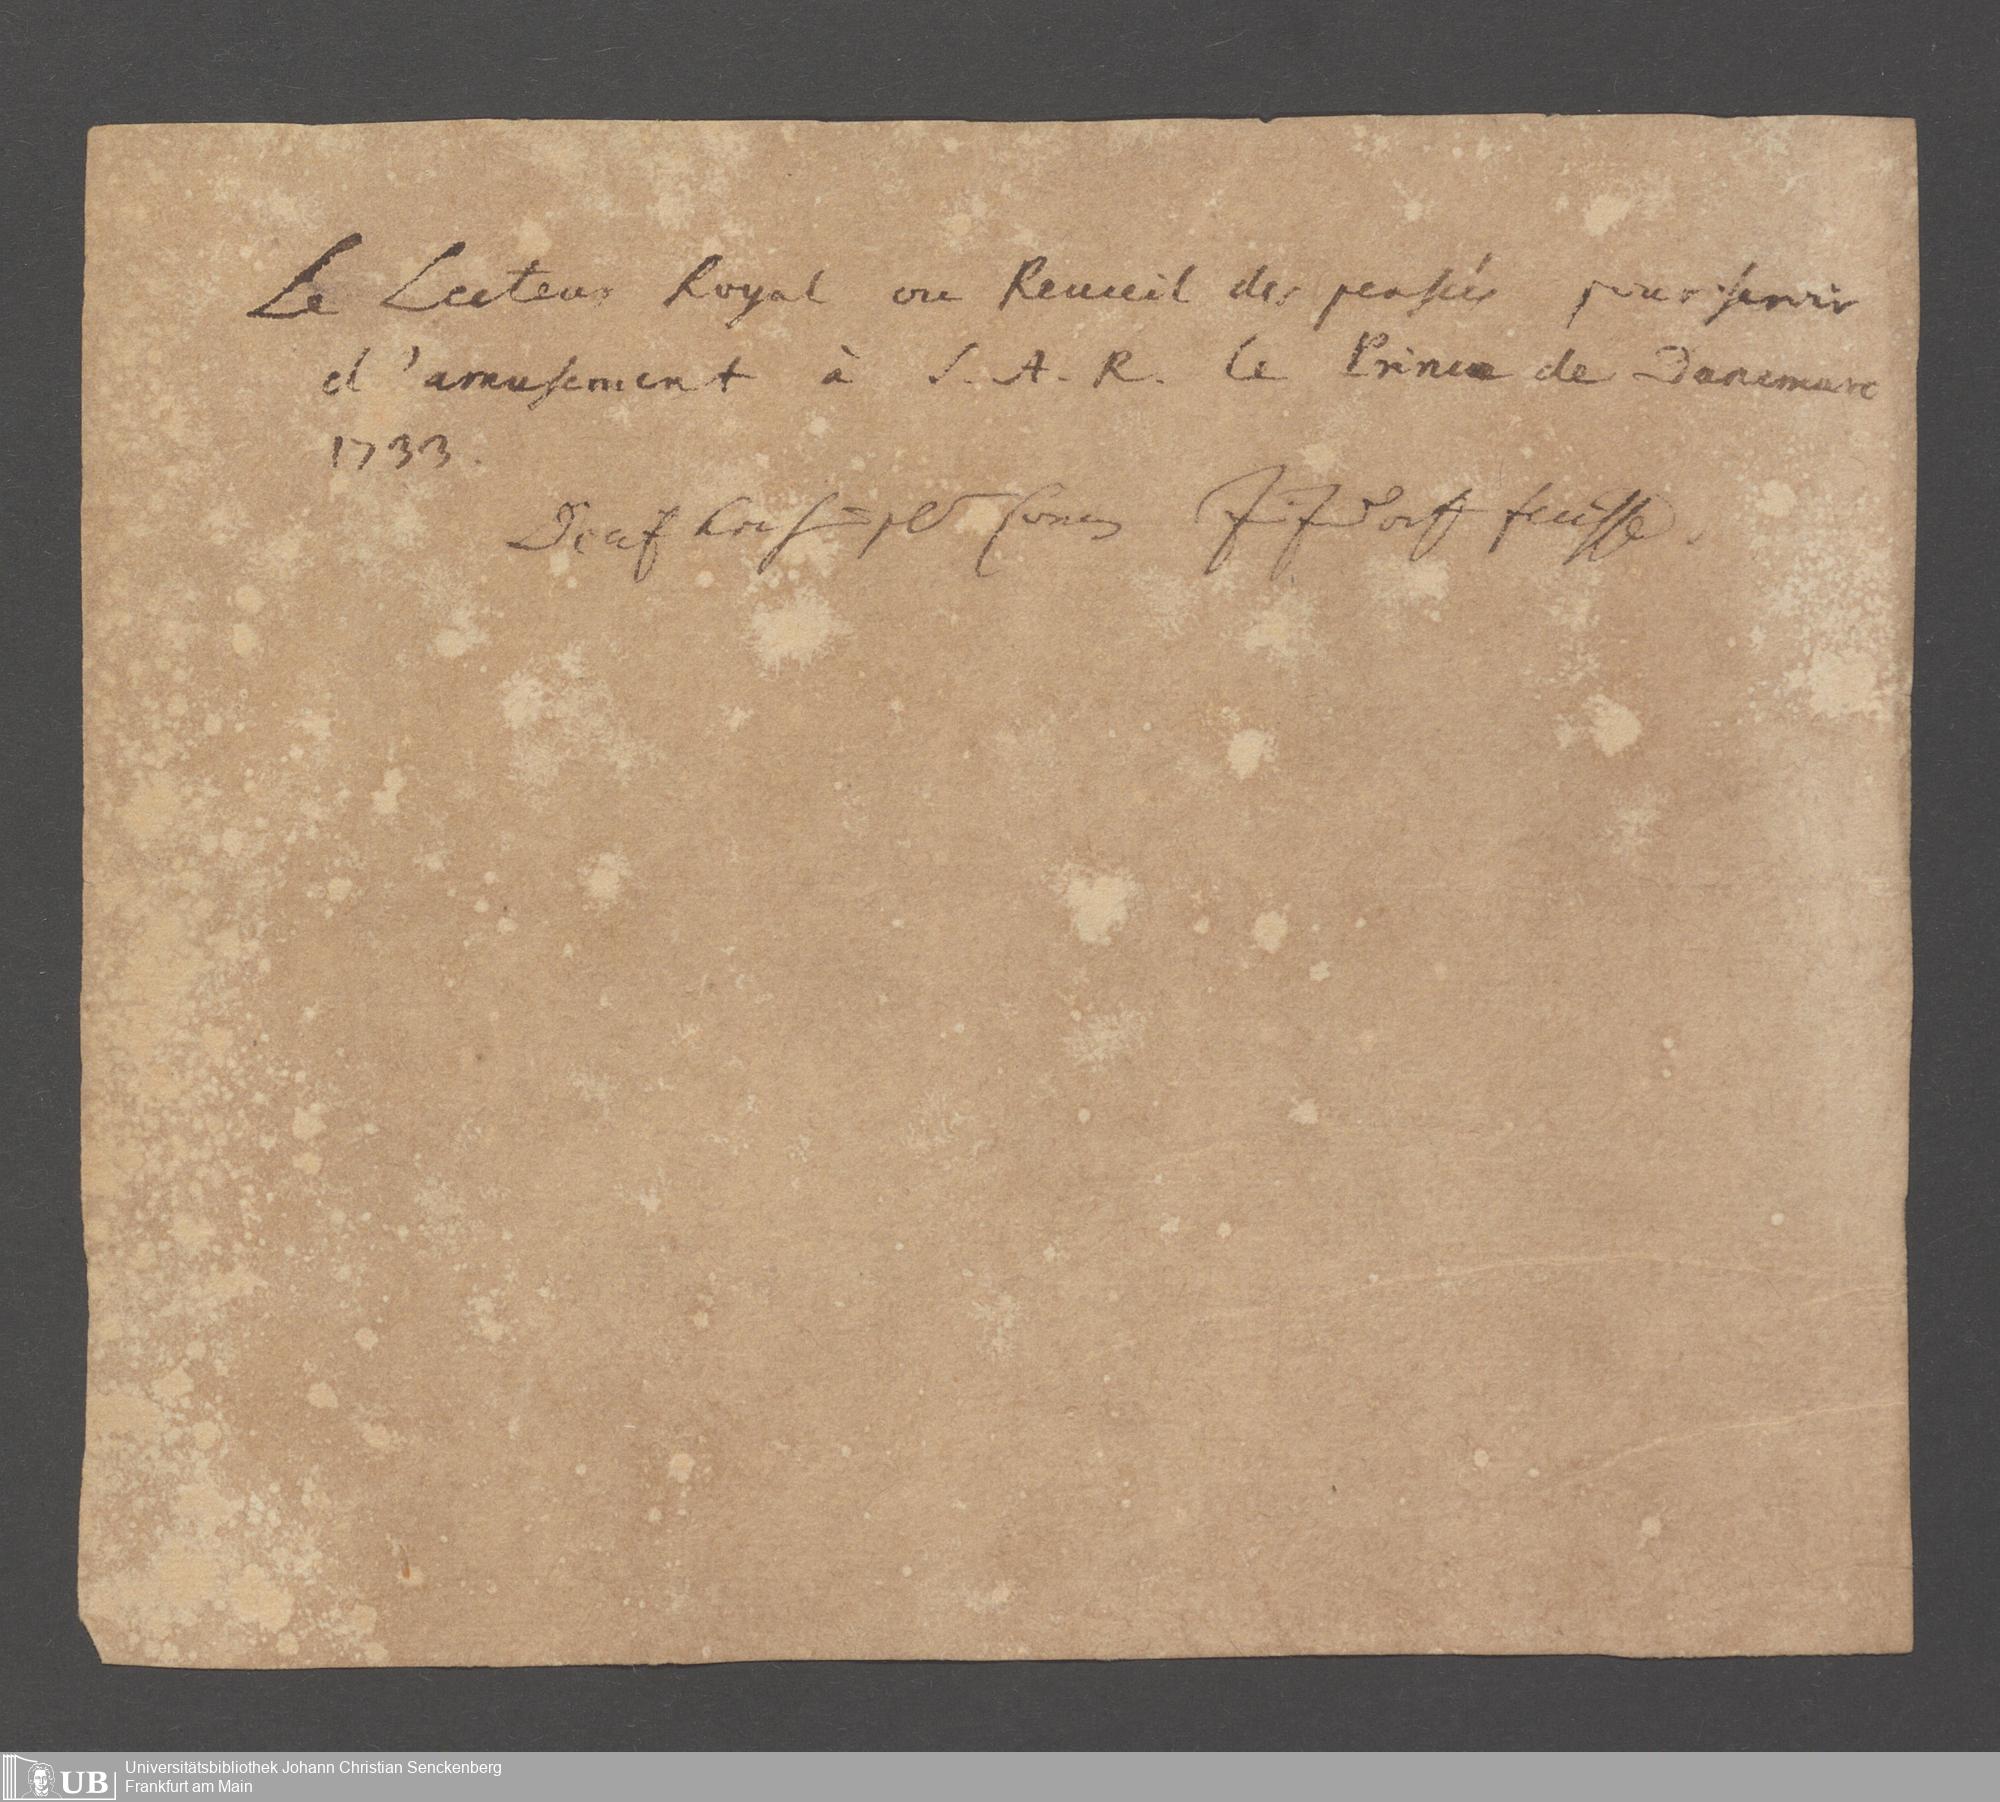 Le Lecteur Royal ou Recueil des pensées pour servir
d'amusement à S. A. R. le Prince de Danemarc
1733.
UB Universitätsbibliothek Johann Christian Senckenberg
Frankfurt am Main